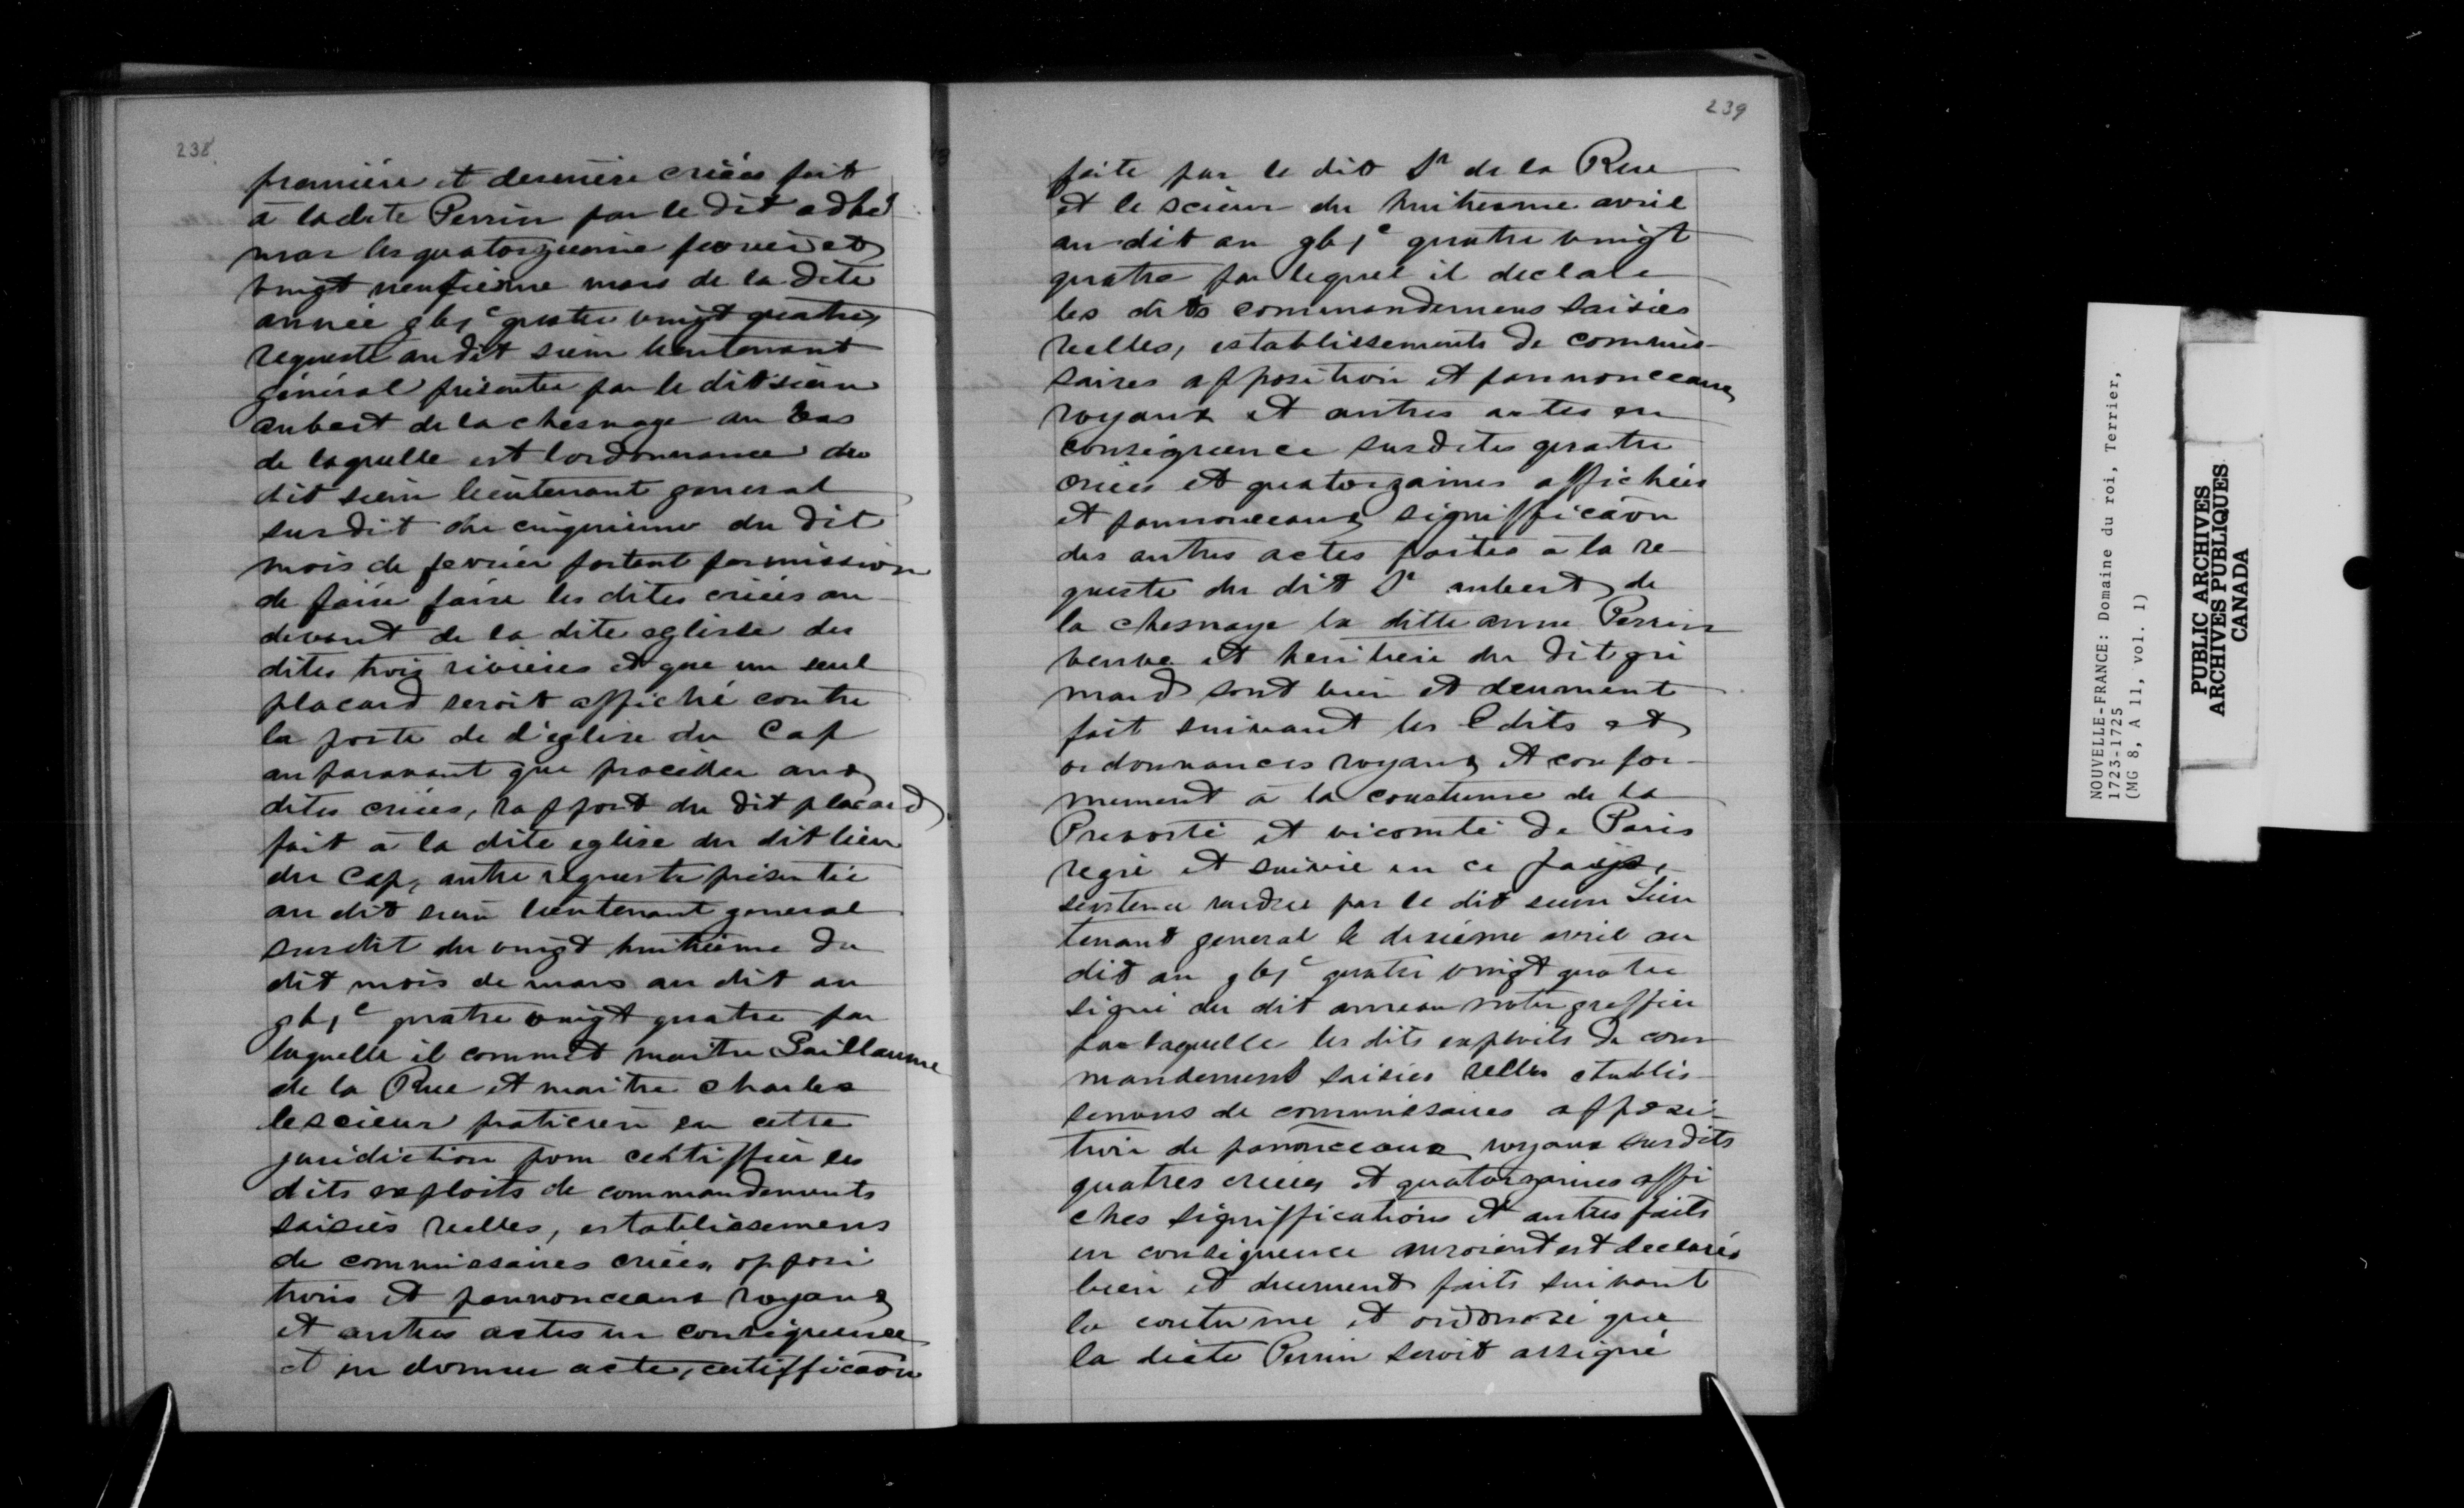 238
première et dernière criées fait
à la dite Perrin par le dit adhé
mar les quatorzieme fevrier et
vingt neufiesme mars de la dite
année gb1c quatre vingt quatre,
requeste au dit sieur lieutenant
général présentée par le dit sieur
aubert de la chesnaye au bas
de laquelle est lordonnance du
dit sieur lieutenant general
susdit du cinquieme du dit
mois de fevrier portant permission
de faire faire les dites criées au
devant de la dite eglisse des
dites trois rivières et que un seul
placard seroit affiché contre
la porte de l'église du Cap
auparavant que procéder aux
dites criées, rapport du dit placard
fait à la dite eglise du dit lieu
du Cap, autre requeste présentée
au dit sieur lieutenant general
susdit du vingt huitième du
dit mois de mars au dit an
gb1c quatre vingt quatre par
laquelle il commet maitre Guillaume
de la Rue et maitre charles
lescieur praticien en cette
juridiction pour certiffier les
dits exploits de commandements
saisies reelles, establissemens
de commissaires criées, opposi
tions et pannonceaux royaux
et autres actes en conséquence
et en donner acte, certifficaōn
239
faite par le dit Sr de la Rue
et le scieur du huitiesme avril
au dit an gb1c quatre vingt
quatre par lequel il declare
les dits commandemens saisies
reelles, establissements de commis-
saires apposition et pannonceaux
royaux et autres actes en
conséquence susdites quatre
criées et quatorzaines affichées
et pannonceaux signifficaōn
des autres actes faites à la re-
queste du dit Sr aubert de
la chesnaye la ditte anne Perrin
veuve et heritiere du dit gri
mard sont bien et deument
fait suivant les Edits et
ordonnances royaux et confor-
mement à la coustume de la
Prevosté et vicomté de Paris
regie et suivie en ce pays,
sentence rendue par le dit sieur Lieu
tenant general le dixiéme avril au
dit an gb1c quatre vingt quatre
signé du dit ameau notre greffier
par laquelle les dits exploits de com
mandement saisies reelles etablis-
semens de commissaires apposi-
tion de panonceaux royaux susdits
quatres criées et quatorzaines affi
ches signiffications et autres faits
en conséquence auroient est declarés
bien et duement faits suivant
la coutume et ordonné que
la dicte Perrin seroit assigné
NOUVELLE-FRANCE: Domaine du roi, Terrier,
1723-1725
(MG 8, A 11, vol. 1)
PUBLIC ARCHIVES
ARCHIVES PUBLIQUES
CANADA